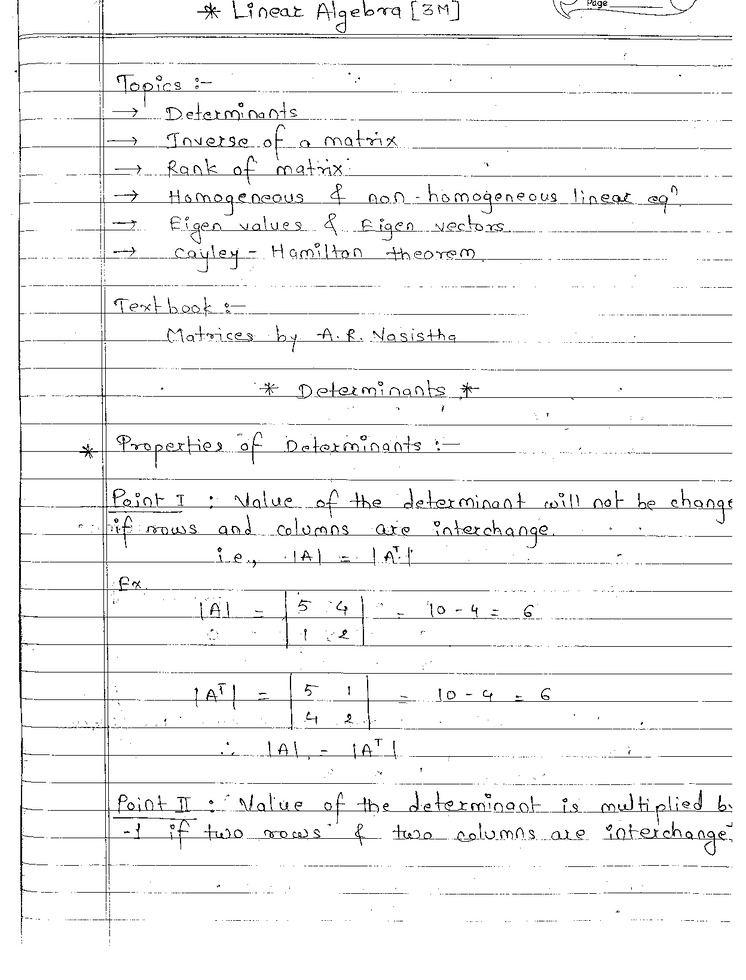 * Linear Algebra [3M]
Page
Topics :-
→ Determinants
→ Inverse of a matrix
→ Rank of matrix
→ Homogeneous & non-homogeneous linear eqⁿ
→ Eigen values & Eigen vectors
→ Cayley - Hamilton theorem
Textbook :-
Matrices by A.R. Vasistha
* Determinants *
* Properties of Determinants :-
Point I : Value of the determinant will not be change
if rows and columns are interchange.
i.e., |A| = |Aᵀ|
Ex.
|A| = | 5 4 | = 10 - 4 = 6
| 1 2 |
|Aᵀ| = | 5 1 | = 10 - 4 = 6
| 4 2 |
∴ |A| = |Aᵀ|
Point II : Value of the determinant is multiplied b
-1 if two rows & two columns are interchange.